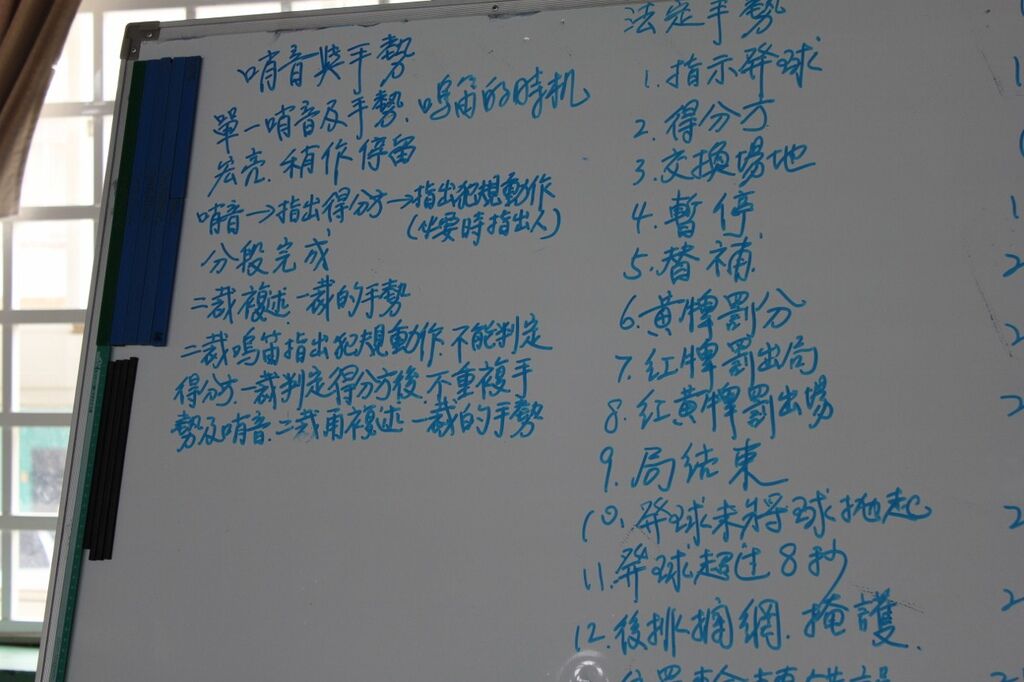 哨音與手勢
單一哨音及手勢.鳴笛的時机
宏亮.稍作停留
哨音→指出得分方→指出犯規動作
(必要時指出人)
分段完成
二裁複述一裁的手勢
二裁鳴笛指出犯規動作.不能判定
得分方.一裁判定得分方後.不重複手
勢及哨音.二裁再複述一裁的手勢
法定手勢
1.指示發球
2.得分方
3.交換場地
4.暫停
5.替補
6.黃牌罰分
7.紅牌罰出局
8.紅黃牌罰出場
9.局結束
10.發球未將球拋起
11.發球超过8秒
12.後排攔網.掩護